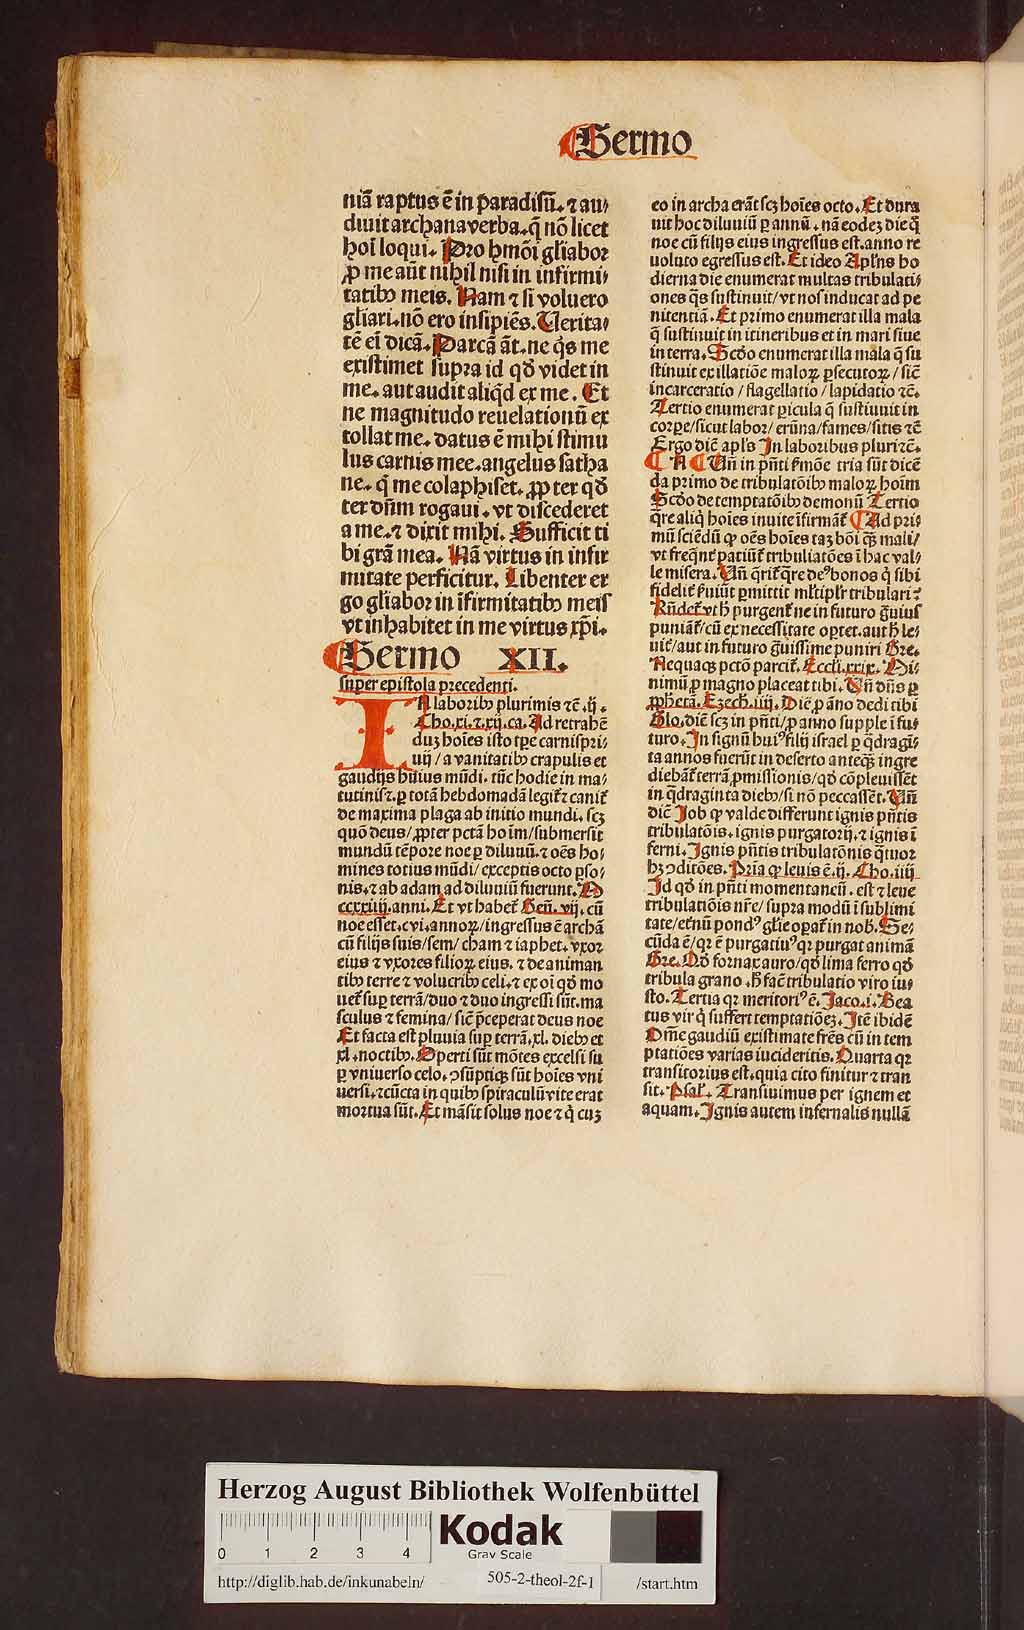 Sermo
niā raptus ē in paradisū. ⁊ au⸗
diuit archana verba. q̄ nō licet
hoī loqui. Pro hmōi gl̄iabor
ꝓ me aūt nihil nisi in infirmi⸗
tatibꝰ meis. Nam ⁊ si voluero
gl̄iari. nō ero insipiēs. Uerita⸗
tē eī dicā. Parcā āt. ne q̄s me
existimet supra id qd̄ videt in
me. aut audit aliq̄d ex me. Et
ne magnitudo reuelationū ex
tollat me. datus ē mihi stimu
lus carnis mee. angelus satha
ne. q̄ me colaphiset. ꝓpter qd̄
ter dn̄m rogaui. vt discederet
a me. ⁊ dixit mihi. Sufficit ti
bi grā mea. Nā virtus in infir
mitate perficitur. Libenter er
go gl̄iabor in īfirmitatibꝰ meis
vt inhabitet in me virtus xp̄i.
Sermo XII.
super epistola precedenti.
IN laboribꝰ plurimis ⁊c̄. ij.
Cho. xi. ⁊. xij. ca. Ad retrahē
duꝫ hoīes isto tꝑe carnispri⸗
uij / a vanitatibꝰ crapulis et
gaudijs huius mūdi. tūc hodie in ma⸗
tutinis ⁊. ꝑ totā hebdomadā legit̄ ⁊ canit̄
de maxima plaga ab initio mundi. scꝫ
quō deus / ꝓpter pctā hoīm / submersit
mundū tēpore noe ꝑ diluuiū. ⁊ oēs ho⸗
mines totius mūdi / exceptis octo ꝑso⸗
nis. ⁊ ab adam ad diluuiū fuerunt. M
ccxxxiiij. anni. Et vt habet̄ Gen̄. vij. cū
noe esset. cvi. annoꝝ / ingressus ē archā
cū filijs suis / sem / cham ⁊ iaphet. vxor
eius ⁊ vxores filioꝝ eius. ⁊ de animan
tibꝰ terre ⁊ volucribꝰ celi. ⁊ ex oī qd̄ mo
uet̄ suꝑ terrā / duo ⁊ duo ingressi sūt. ma
sculus ⁊ femina / sic̄ p̄ceperat deus noe
Et facta est pluuia suꝑ terrā. xl. diebꝰ et
xl. noctibꝰ. Operti sūt mōtes excelsi su
ꝑ vniuerso celo. ꝯsūptiqꝫ sūt hoīes vni
uersi. ⁊ cūcta in quibꝰ spiraculū vite erat
mortua sūt. Et māsit solus noe ⁊ q̄ cuꝫ
eo in archa erāt scꝫ hoīes octo. Et dura
uit hoc diluuiū ꝑ annū. nā eodeꝫ die q̄
noe cū filijs eius ingressus est. anno re
uoluto egressus est. Et ideo Apl̄us ho
dierna die enumerat multas tribulati⸗
ones q̄s sustinuit / vt nos inducat ad pe
nitentiā. Et primo enumerat illa mala
q̄ sustinuit in itineribus et in mari siue
in terra. Scd̄o enumerat illa mala q̄ su
stinuit ex illatiōe maloꝝ ꝑsecutoꝝ / sic̄
incarceratio / flagellatio / lapidatio ⁊c̄.
Tertio enumerat ꝑicula q̄ sustinuit in
corꝑe / sicut labor / erūna / fames / sitis ⁊c̄
Ergo dic̄ apl̄s In laboribus pluri ⁊c̄.
Un̄ in pn̄ti s̄mōe tria sūt dicē
da primo de tribulatōibꝰ maloꝝ hoīm
Scd̄o de temptatōibꝰ demonū Tertio
q̄re aliq̄ hoīes inuite īfirmāt̄ Ad pri⸗
mū sciēdū ꝙ oēs hoīes taꝫ bōi qꝫ mali /
vt freq̄nt̄ patiūt̄ tribulatōes ī hac val⸗
le misera. Un̄ q̄rit̄ q̄re deꝰ bonos q̄ sibi
fidelit̄ s̄uiūt ꝑmittit ml̄tiplr̄ tribulari?
Rn̄det̄ vt h̄ purgent̄ ne in futuro ḡuius
puniāt̄ / cū ex necessitate oꝑtet. aut h̄ le⸗
uit̄ / aut in futuro ḡuissime puniri Gre.
Nequaqꝫ pctō parcit̄. Eccli. xxix. Mi⸗
nimū ꝓ magno placeat tibi. Un̄ dn̄s ꝑ
ꝓphetā. Ezech. iiij. Diē ꝓ āno dedi tibi
Glo. diē scꝫ in pn̄ti / ꝓ anno supple ī fu⸗
turo. In signū huiꝰ filij israel ꝑ q̄dragī⸗
ta annos fuerūt in deserto anteqꝫ ingre
diebāt̄ terrā ꝓmissionis / qd̄ cōpleuissēt
in q̄draginta diebꝰ / si nō peccassēt. Un̄
dic̄ Job ꝙ valde differunt ignis pn̄tis
tribulatōis. ignis purgatorij. ⁊ ignis ī
ferni. Ignis pn̄tis tribulatōnis q̄tuor
hꝫ ꝯditōes. Pria qꝛ leuis ē. ij. Cho. iiij
Id qd̄ in pn̄ti momentaneū. est ⁊ leue
tribulatiōis nr̄e / supra modū ī sublimi
tate / et̄nū pondꝰ gl̄ie oꝑat̄ in nob̄. Se⸗
cūda ē / qꝛ ē purgatiuꝰ qꝛ purgat animā
Gre. Qd̄ fornax auro / qd̄ lima ferro qd̄
tribula grano. h̄ fac̄ tribulatio viro iu⸗
sto. Tertia qꝛ meritoriꝰ ē. Jaco. i. Bea
tus vir q̄ suffert temptatiōeꝫ. Itē ibidē
Om̄e gaudiū existimate fr̄es cū in tem
ptatiōes varias incideritis. Quarta qꝛ
transitorius est. quia cito finitur ⁊ tran
sit. Psal̄. Transiuimus per ignem et
aquam. Ignis autem infernalis nullā
Herzog August Bibliothek Wolfenbüttel
0 1 2 3 4
Kodak
Gray Scale
http://diglib.hab.de/inkunabeln/ 505-2-theol-2f-1 /start.htm